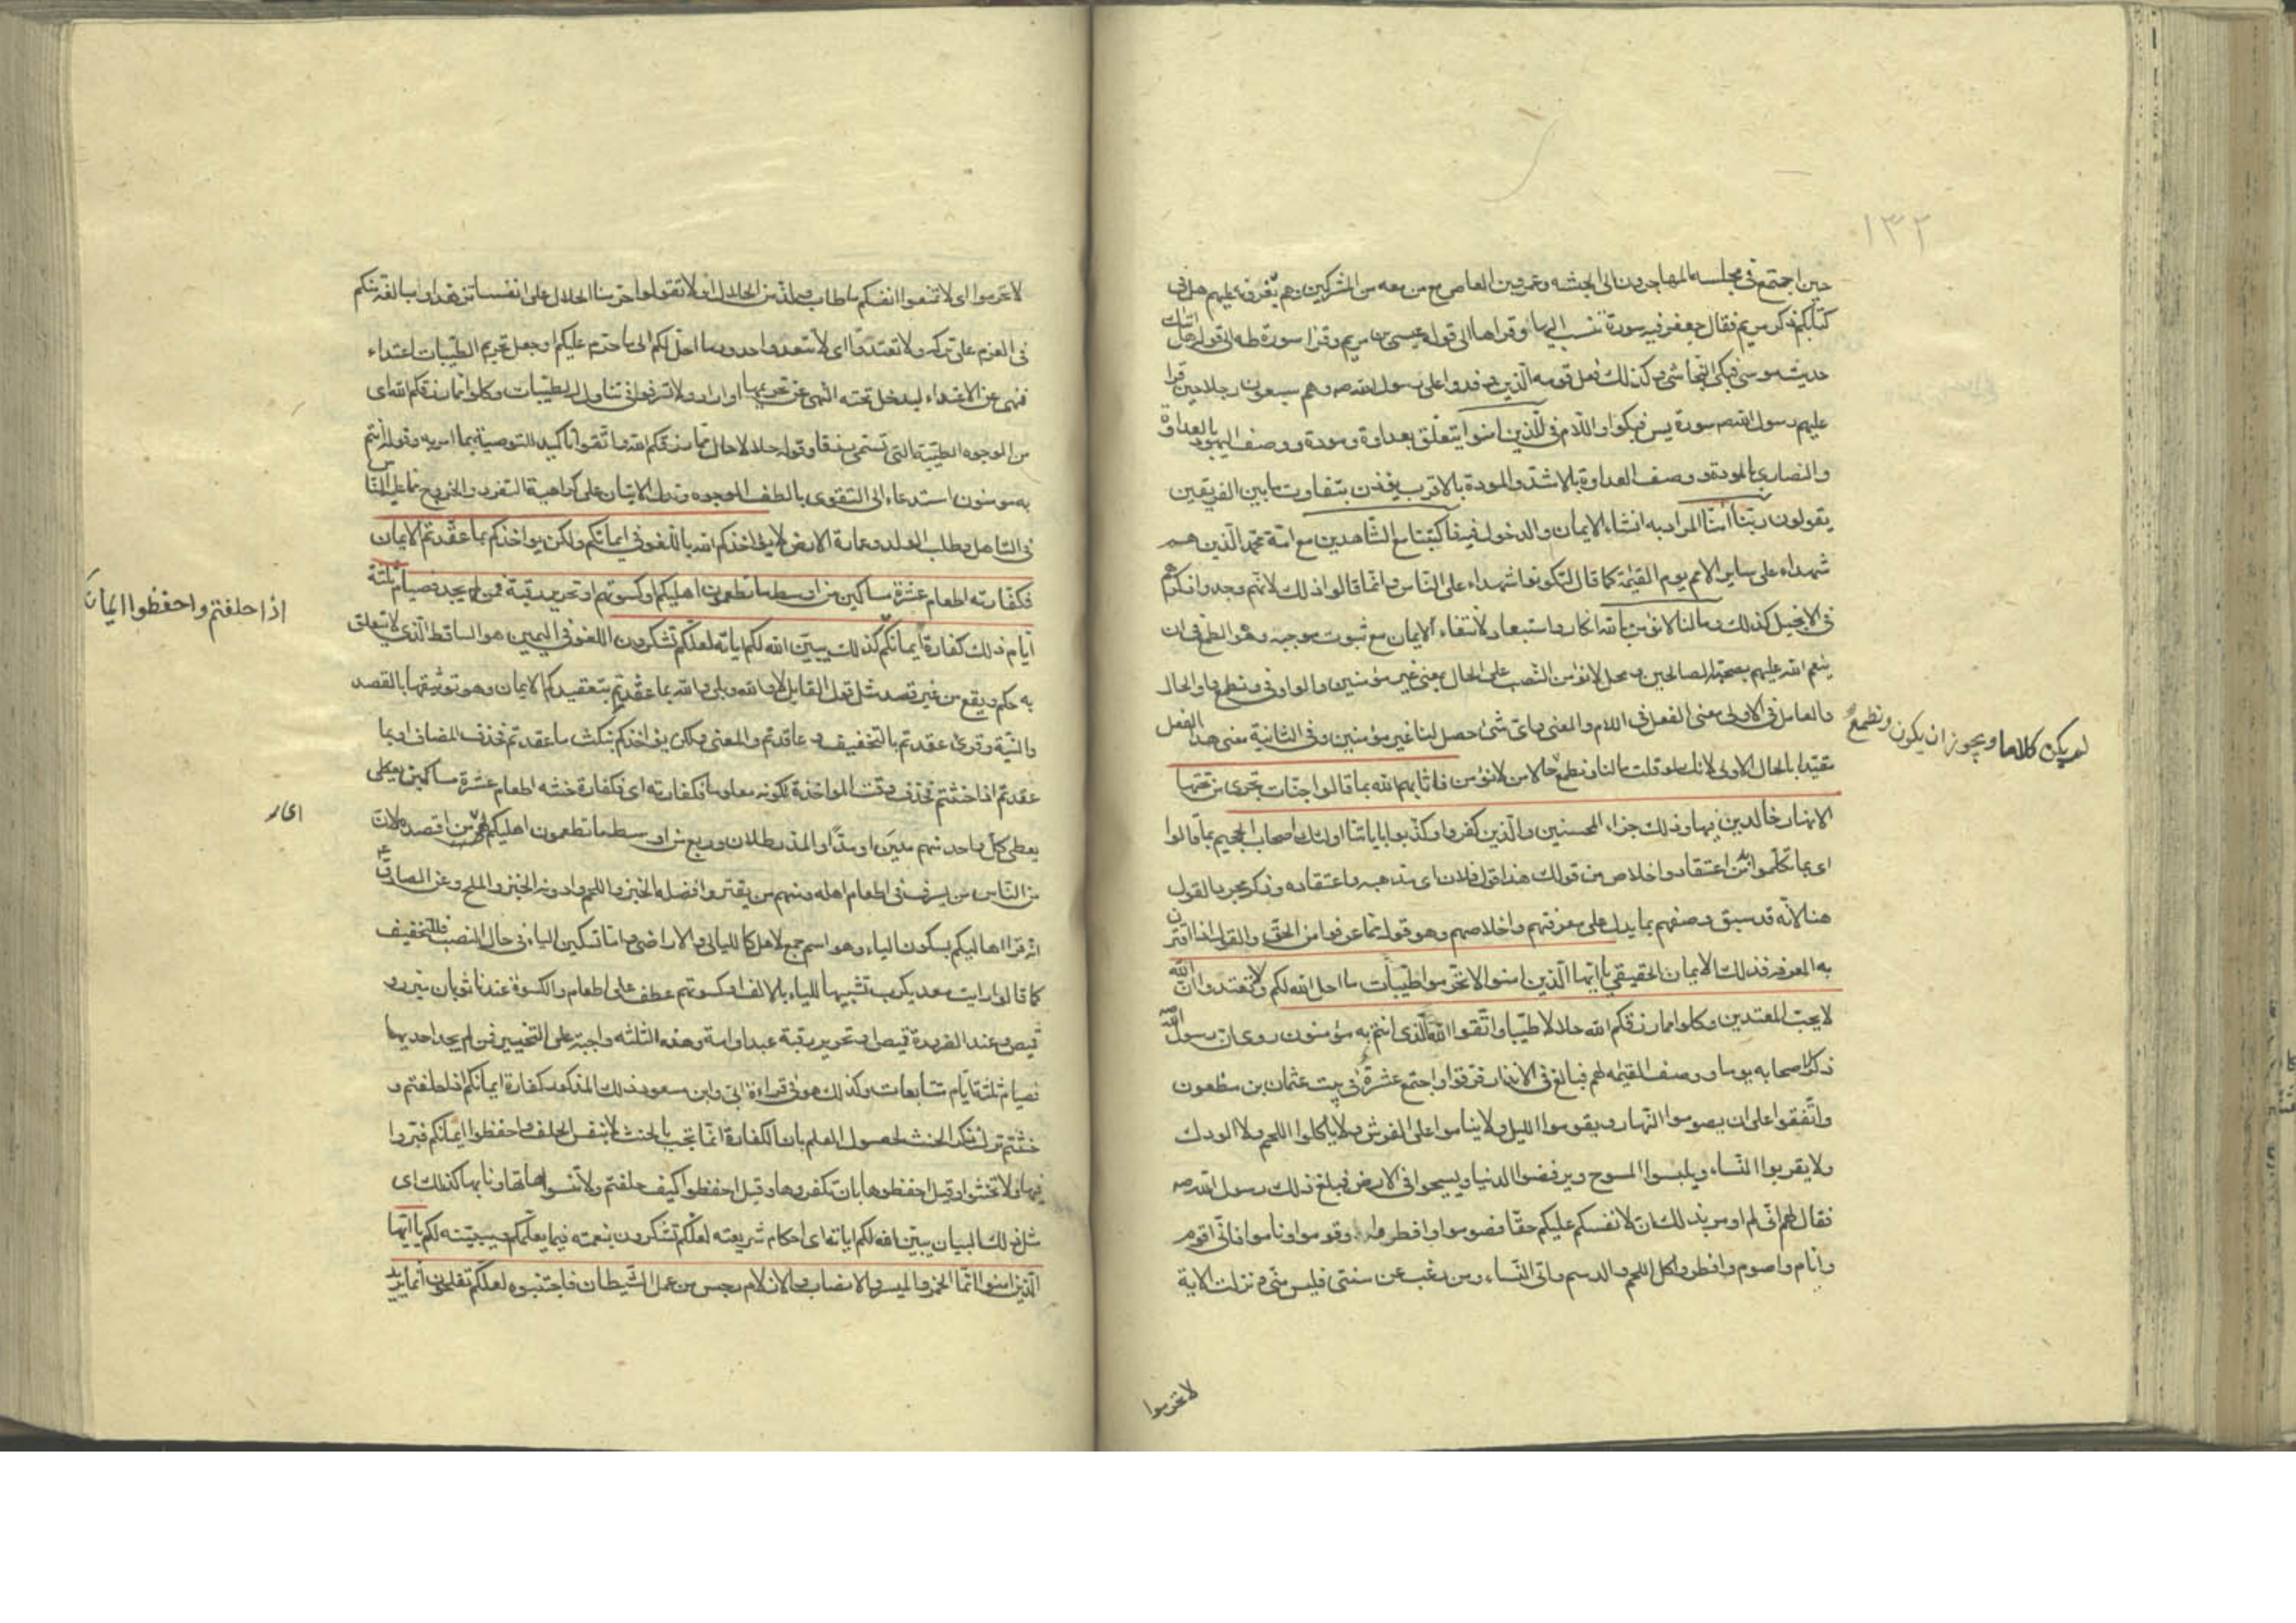 ١٣٢
حين اجتمع في مجلسه المهاجرون الى الحبشه وعمرو بن العاص مع من معه من المشركين وهم يغرونه عليهم هل في
كتابكم ذكر مريم فقال جعفر فيه سورة تنسب اليها وقراها الى قوله عيسى بن مريم وقرا سورة طه الى قوله هل اتيك
حديث موسى فبكى النجاشى وكذلك فعل قومه الذين وفدوا على رسول الله صه وهم سبعون رجلا حين قرا
عليهم رسول الله صه سورة يس فبكوا واللام في للذين امنوا يتعلق بعداوة ومودة ووصف اليهود بالعداوة
والنصارى بالمودة ووصف العداوة بالاشد والمودة بالاقرب يؤذن بتفاوت ما بين الفريقين
يقولون ربنا امنا المراد به انشاء الايمان والدخول فيه فاكتبنا مع الشاهدين مع امة محمد الذين هم
شهداء على ساير الامم يوم القيمة كما قال لتكونوا شهداء على الناس وانما قالوا ذلك لانهم وجدوا ذكرهم
في الانجيل كذلك وما لنا لا نؤمن بالله انكار واستبعاد لانتفاء الايمان مع ثبوت موجبه وهو الطمع في ان
ينعم الله عليهم بصحبة الصالحين ومحل لا نؤمن النصب على الحال بمعنى غير مؤمنين والواو في ونطمع واو الحال
والعامل في الاولى معنى الفعل في اللام والمعنى واى شئ حصل لنا غير مؤمنين وفي الثانية معنى هذا الفعل
لم يكن كلاما ويجوز ان يكون ونطمع
مقيدا بالحال الاولى لانك لو قلت مالنا ونطمع حالا من لا نؤمن فاثابهم الله بما قالوا جنات تجرى من تحتها
الانهار خالدين فيها وذلك جزاء المحسنين والذين كفروا وكذبوا باياتنا اولئك اصحاب الجحيم بما قالوا
اى بما تكلموا به من اعتقاد واخلاص من قولك هذا قول فلان اى مذهبه واعتقاده وذكر مجرد القول
هنا لانه قد سبق وصفهم بما يدل على معرفتهم واخلاصهم وهو قوله مما عرفوا من الحق والقول اذا اقترن
به المعرفة فذلك الايمان الحقيقي يا ايها الذين امنوا لا تحرموا طيبات ما احل الله لكم ولا تعتدوا ان الله
لا يحب المعتدين وكلوا مما رزقكم الله حلالا طيبا واتقوا الله الذى انتم به مؤمنون روى ان رسول الله
ذكر لاصحابه يوما ووصف القيمه لهم فبالغ في الانذار فرقوا واجتمع عشرة في بيت عثمان بن مظعون
واتفقوا على ان يصوموا النهار ويقوموا الليل ولا يناموا على الفرش ولا ياكلوا اللحم ولا الودك
ولا يقربوا النساء ويلبسوا المسوح ويرفضوا الدنيا ويسيحوا في الارض فبلغ ذلك رسول الله صه
فقال لهم انى لم اومر بذلك ان لانفسكم عليكم حقا فصوموا وافطروا وقوموا وناموا فانى اقوم
وانام واصوم وافطر واكل اللحم والدسم واتى النساء ومن رغب عن سنتى فليس منى ونزلت الاية
لا تحرموا
لا تحرموا اى لا تمنعوا انفسكم ما طاب ولذ من الحلال او لا تقولوا حرمنا الحلال على انفسنا تزهدا ومبالغة منكم
في العزم على تركه ولا تعتدوا اى لا تتعدوا حدود ما احل لكم الى ما حرم عليكم او جعل تحريم الطيبات اعتداء
فنهى عن الاعتداء ليدخل تحته النهى عن تحريمها او اراد ولا تسرفوا في تناول الطيبات وكلوا مما رزقكم الله اى
من الوجوه الطيبة التى تسمى رزقا وقوله حلالا حال مما رزقكم الله واتقوا تاكيد للتوصية بما امر به وقوله انتم
به مومنون استدعاء الى التقوى بالطف الوجوه وتدل الايتان على كراهية التفرد والخروج عما عليه الناس
في التاهل وطلب الولد وعمارة الارض لا يؤاخذكم الله باللغو في ايمانكم ولكن يؤاخذكم بما عقدتم الايمان
فكفارته اطعام عشرة مساكين من اوسط ما تطعمون اهليكم او كسوتهم او تحرير رقبة فمن لم يجد فصيام ثلثة
ايام ذلك كفارة ايمانكم كذلك يبين الله لكم اياته لعلكم تشكرون اللغو في اليمين هو الساقط الذى لا يتعلق
اذا حلفتم واحفظوا ايمانك
به حكم ويقع من غير قصد مثل قول القايل لا والله وبلى والله بما عقدتم بتعقيدكم الايمان وهو توثيقها بالقصد
والنية وقرئ عقدتم بالتخفيف وعاقدتم والمعنى ولكن يؤاخذكم بنكث ما عقدتم فحذف المضاف او بما
عقدتم اذا حنثتم فحذف وقت المؤاخذة لكونه معلوما فكفارته اى فكفارة حنثه اطعام عشرة مساكين يعطى
يعطى كل واحد منهم مدين او مدا والمد رطلان وربع من اوسط ما تطعمون اهليكم من اقصده لان
من الناس من يسرف في اطعام اهله ومنهم من يقتر وافضله الخبز واللحم وادونه الخبز والملح وعن الصادق
انه قرا اهاليكم بسكون الياء وهو اسم جمع لاهل كالليالي والاراضى واما تسكين الياء في حال النصب فللتخفيف
كما قالوا رايت معديكرب تشبيها للياء بالالف او كسوتهم عطف على اطعام والكسوة عندنا ثوبان ميزر و
قميص وعند الضرورة قميص او تحرير رقبة عبد او امة وهذه الثلثه واجبة على التخيير فمن لم يجد احديها
فصيام ثلثة ايام متتابعات وكذلك هو في قراءة ابى وابن مسعود ذلك المذكور كفارة ايمانكم اذا حلفتم و
حنثتم ترك ذكر الحنث لحصول العلم بان الكفارة انما تجب بالحنث لا بنفس الحلف واحفظوا ايمانكم فبروا
فيها ولا تحنثوا وقيل احفظوها بان تكفروها وقيل احفظوا كيف حلفتم ولا تنسوها تهاونا بها كذلك اى
مثل ذلك البيان يبين الله لكم اياته اى احكام شريعته لعلكم تشكرون نعمته فيما يعلمكم ويبينه لكم يا ايها
الذين امنوا انما الخمر والميسر والانصاب والازلام رجس من عمل الشيطان فاجتنبوه لعلكم تفلحون انما يريد